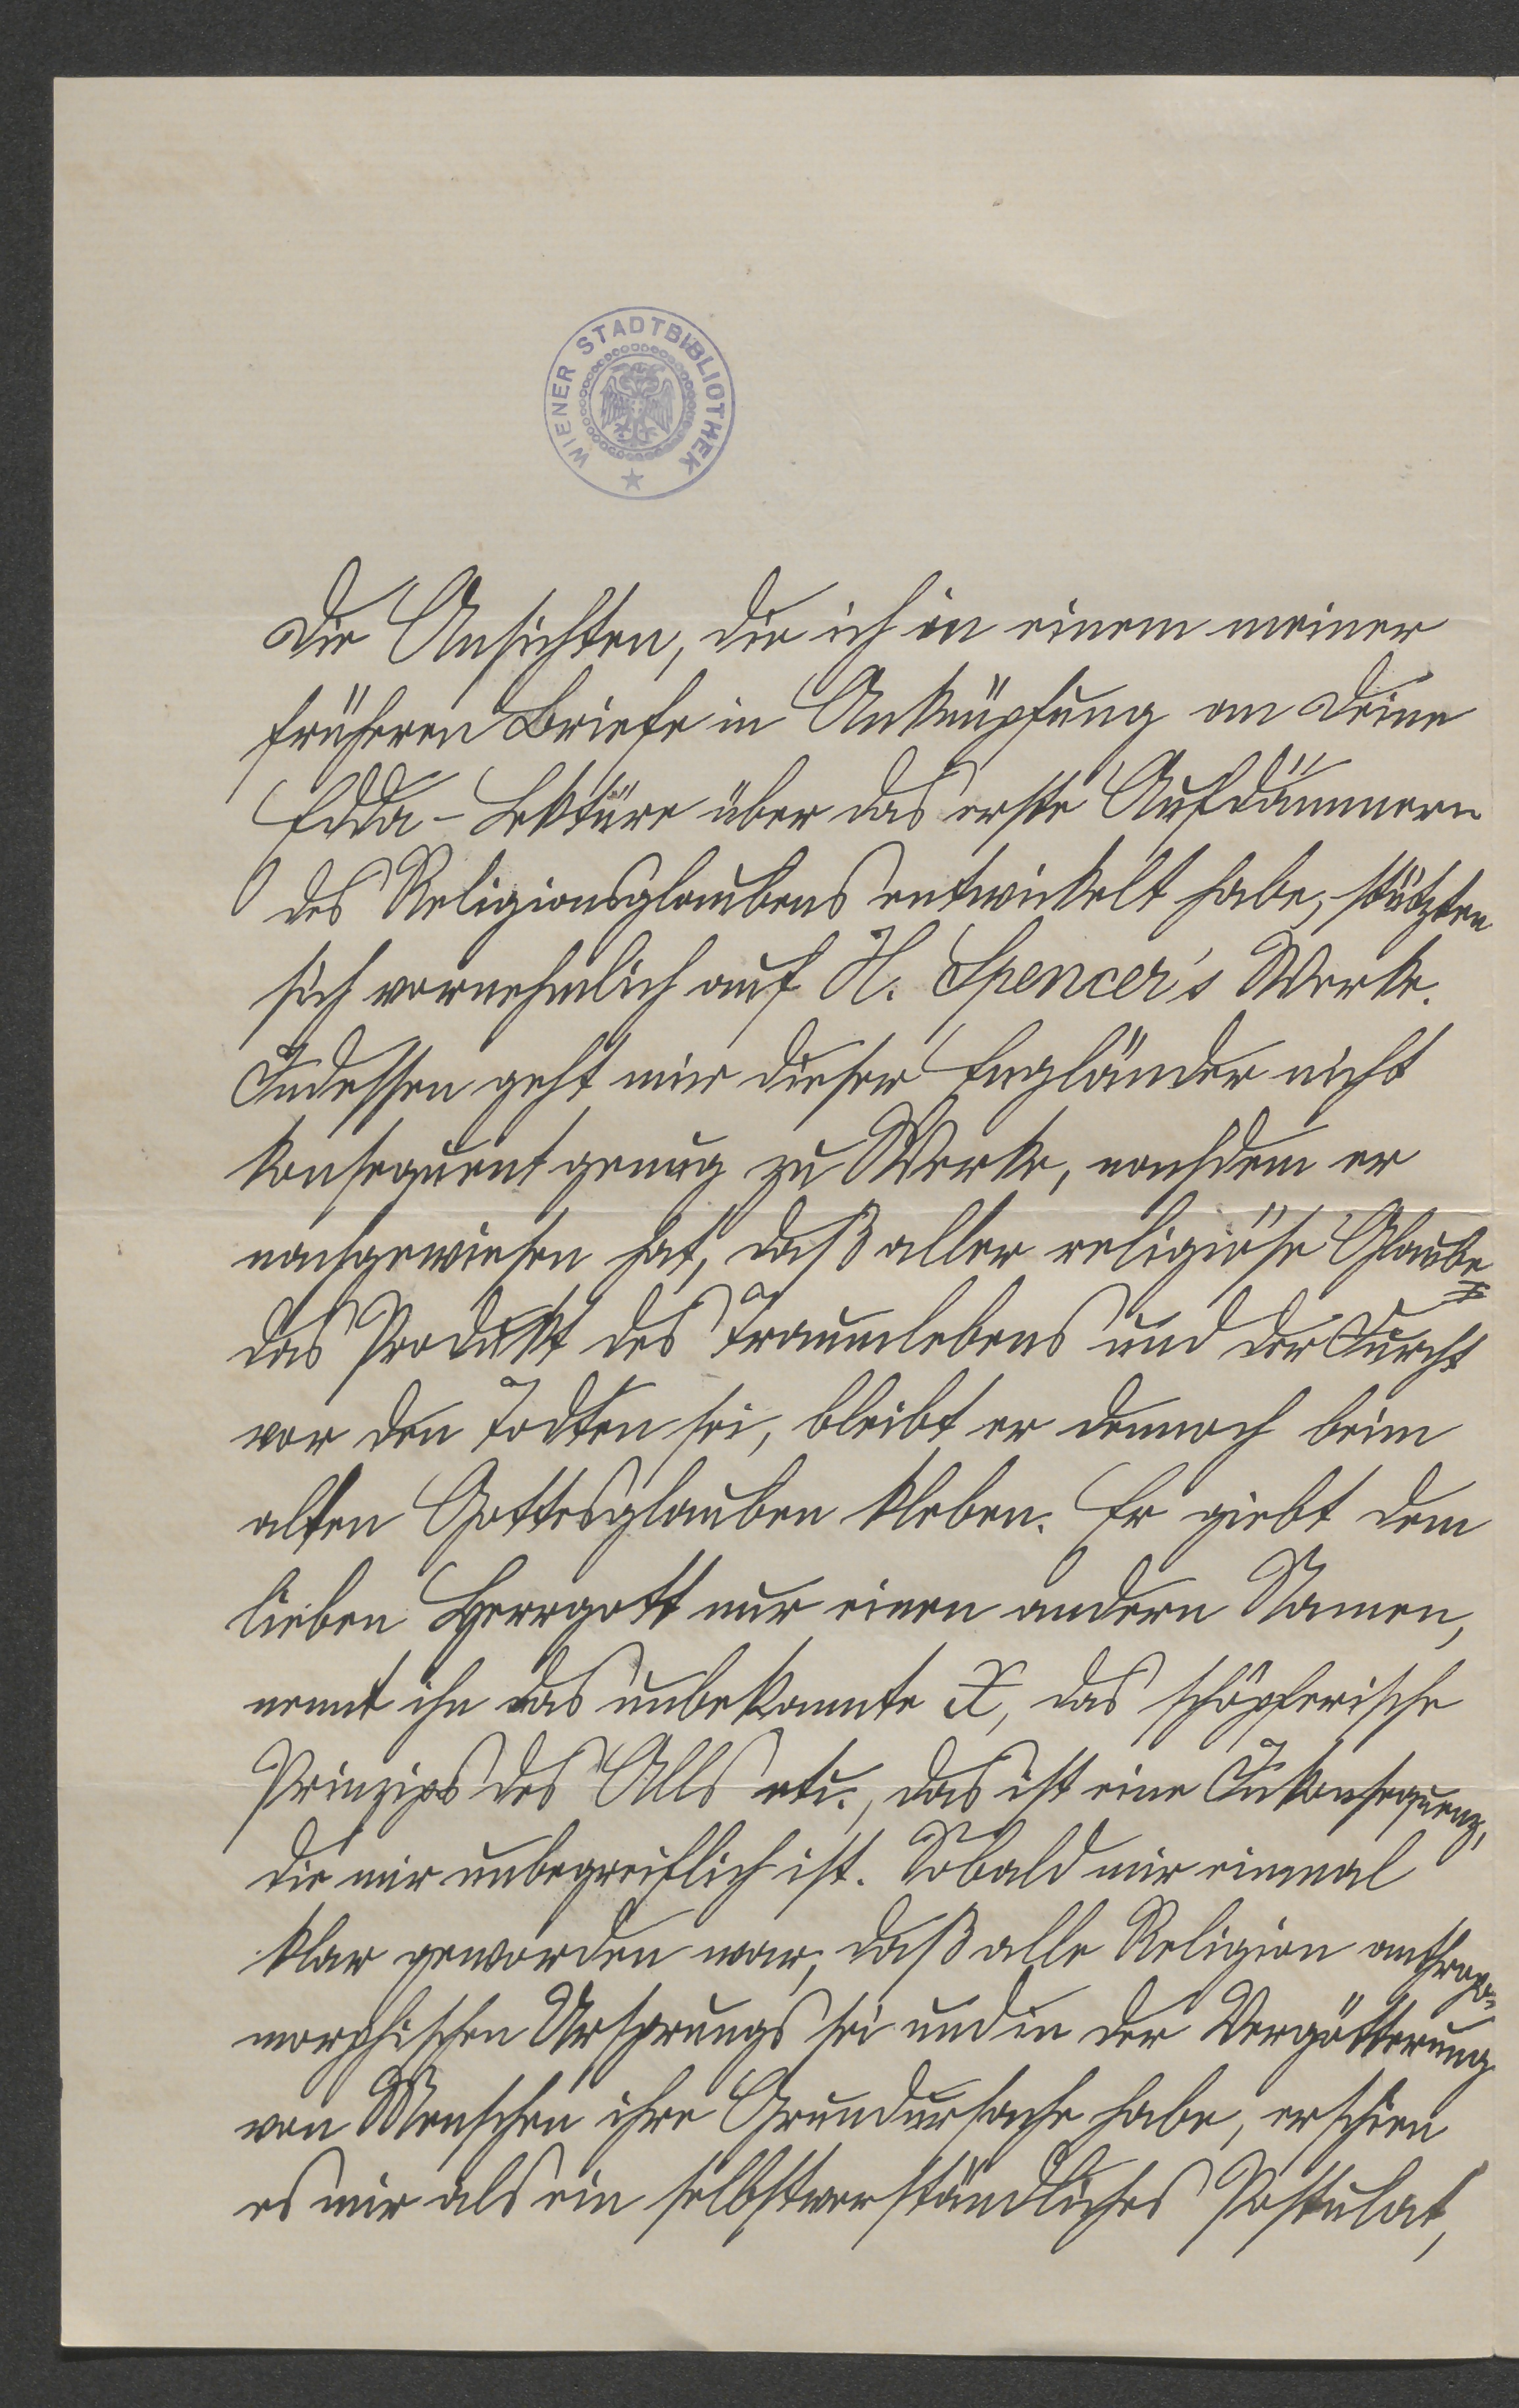 WIENER STADTBIBLIOTHEK
Die Ansichten, die ich in einem meiner
früheren Briefe in Anknüpfung an Deine
Edda-Lektüre über das erste Aufdämmern
des Religionsglaubens entwickelt habe, stützten
sich vornehmlich auf H. Spencer's Werke.
Indessen geht mir dieser Engländer nicht
konsequent genug zu Werke, nachdem er
nachgewiesen hat, daß aller religiöse Glaube
das Produkt des Traumlebens und der Furcht
vor den Todten sei, bleibt er dennoch beim
alten Gottesglauben kleben. Er giebt dem
lieben Herrgott nur einen andern Namen,
nennt ihn das unbekannte X, das schöpferische
Prinzips des Alls etc., das ist eine Inkonsequenz,
die mir unbegreiflich ist. Sobald mir einmal
klar geworden war, daß alle Religion anthropo=
morphischen Ursprungs sei und in der Vergötterung
von Menschen ihre Grundursache habe, erschien
es mir als ein selbstverständliches Postulat,